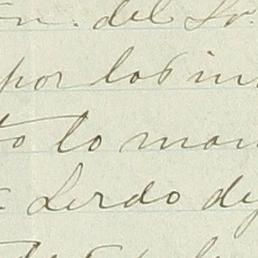 del Sr.
por los in
to lo man
Lerdo de